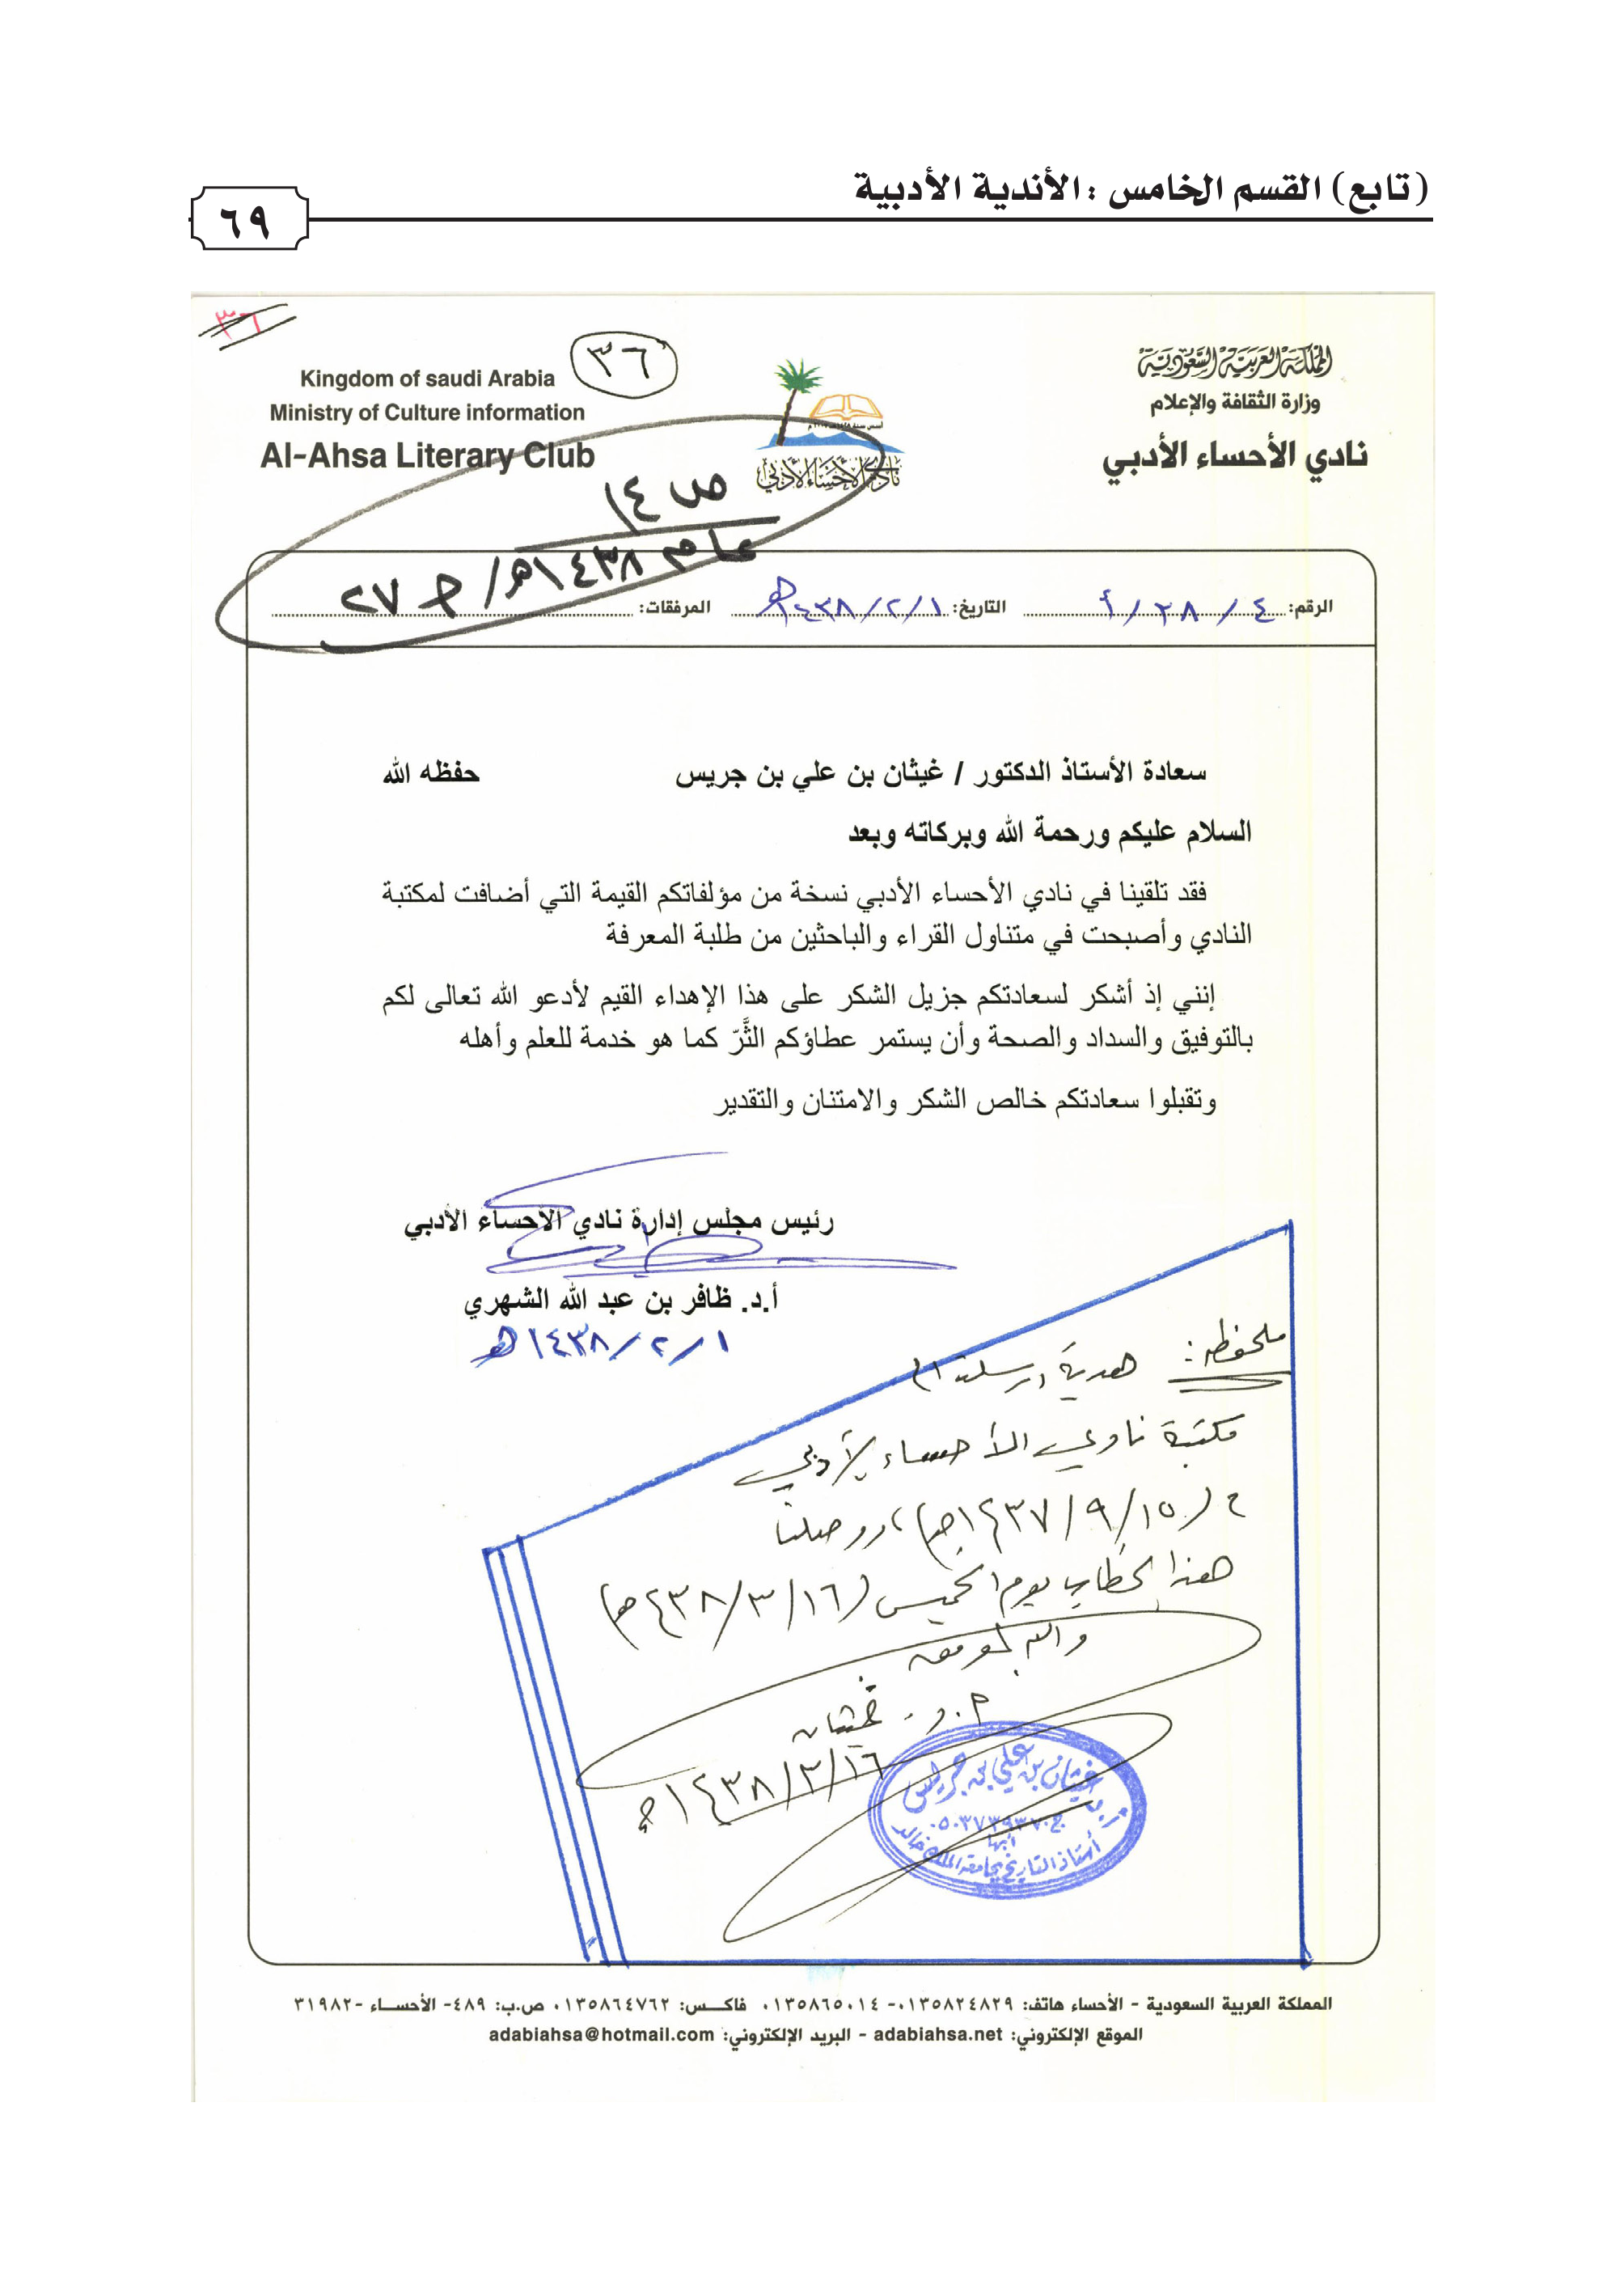 (تابع) القسم الخامس : الأندية الأدبية
٦٩
٣٦
٣٦
المملكة العربية السعودية
وزارة الثقافة والإعلام
نادي الأحساء الأدبي
Kingdom of saudi Arabia
Ministry of Culture information
Al-Ahsa Literary Club
نادي الأحساء الأدبي
ص ١٤
عام ١٤٣٨هـ/ ج ٢٧
الرقم: ٤ / ٢٨ / أ التاريخ: ١ / ٢ / ١٤٣٨هـ المرفقات:
سعادة الأستاذ الدكتور / غيثان بن علي بن جريس حفظه الله
السلام عليكم ورحمة الله وبركاته وبعد
فقد تلقينا في نادي الأحساء الأدبي نسخة من مؤلفاتكم القيمة التي أضافت لمكتبة
النادي وأصبحت في متناول القراء والباحثين من طلبة المعرفة
إنني إذ أشكر لسعادتكم جزيل الشكر على هذا الإهداء القيم لأدعو الله تعالى لكم
بالتوفيق والسداد والصحة وأن يستمر عطاؤكم الثَّرّ كما هو خدمة للعلم وأهله
وتقبلوا سعادتكم خالص الشكر والامتنان والتقدير
رئيس مجلس إدارة نادي الأحساء الأدبي
أ.د. ظافر بن عبد الله الشهري
١ / ٢ / ١٤٣٨هـ
ملحوظة : هدية أرسلت إلى
مكتبة نادي الأحساء الأدبي
في (١٥ / ٩ / ١٤٣٧هـ) ، ووصلنا
هذا الخطاب يوم الخميس (١٦ / ٣ / ١٤٣٨هـ)
والله الموفق
أ . د . غيثان
١٦ / ٣ / ١٤٣٨هـ
أ.د غيثان بن علي بن جريس
ج٠٥٠٣٧٣٩٣٧٠
أبها
أستاذ التاريخ بجامعة الملك خالد
المملكة العربية السعودية - الأحساء هاتف: ٠١٣٥٨٢٤٨٢٩- ٠١٣٥٨٦٥٠١٤ فاكس: ٠١٣٥٨٦٤٧٦٢ ص.ب: ٤٨٩- الأحساء -٣١٩٨٢
الموقع الإلكتروني: adabiahsa.net - البريد الإلكتروني: adabiahsa@hotmail.com